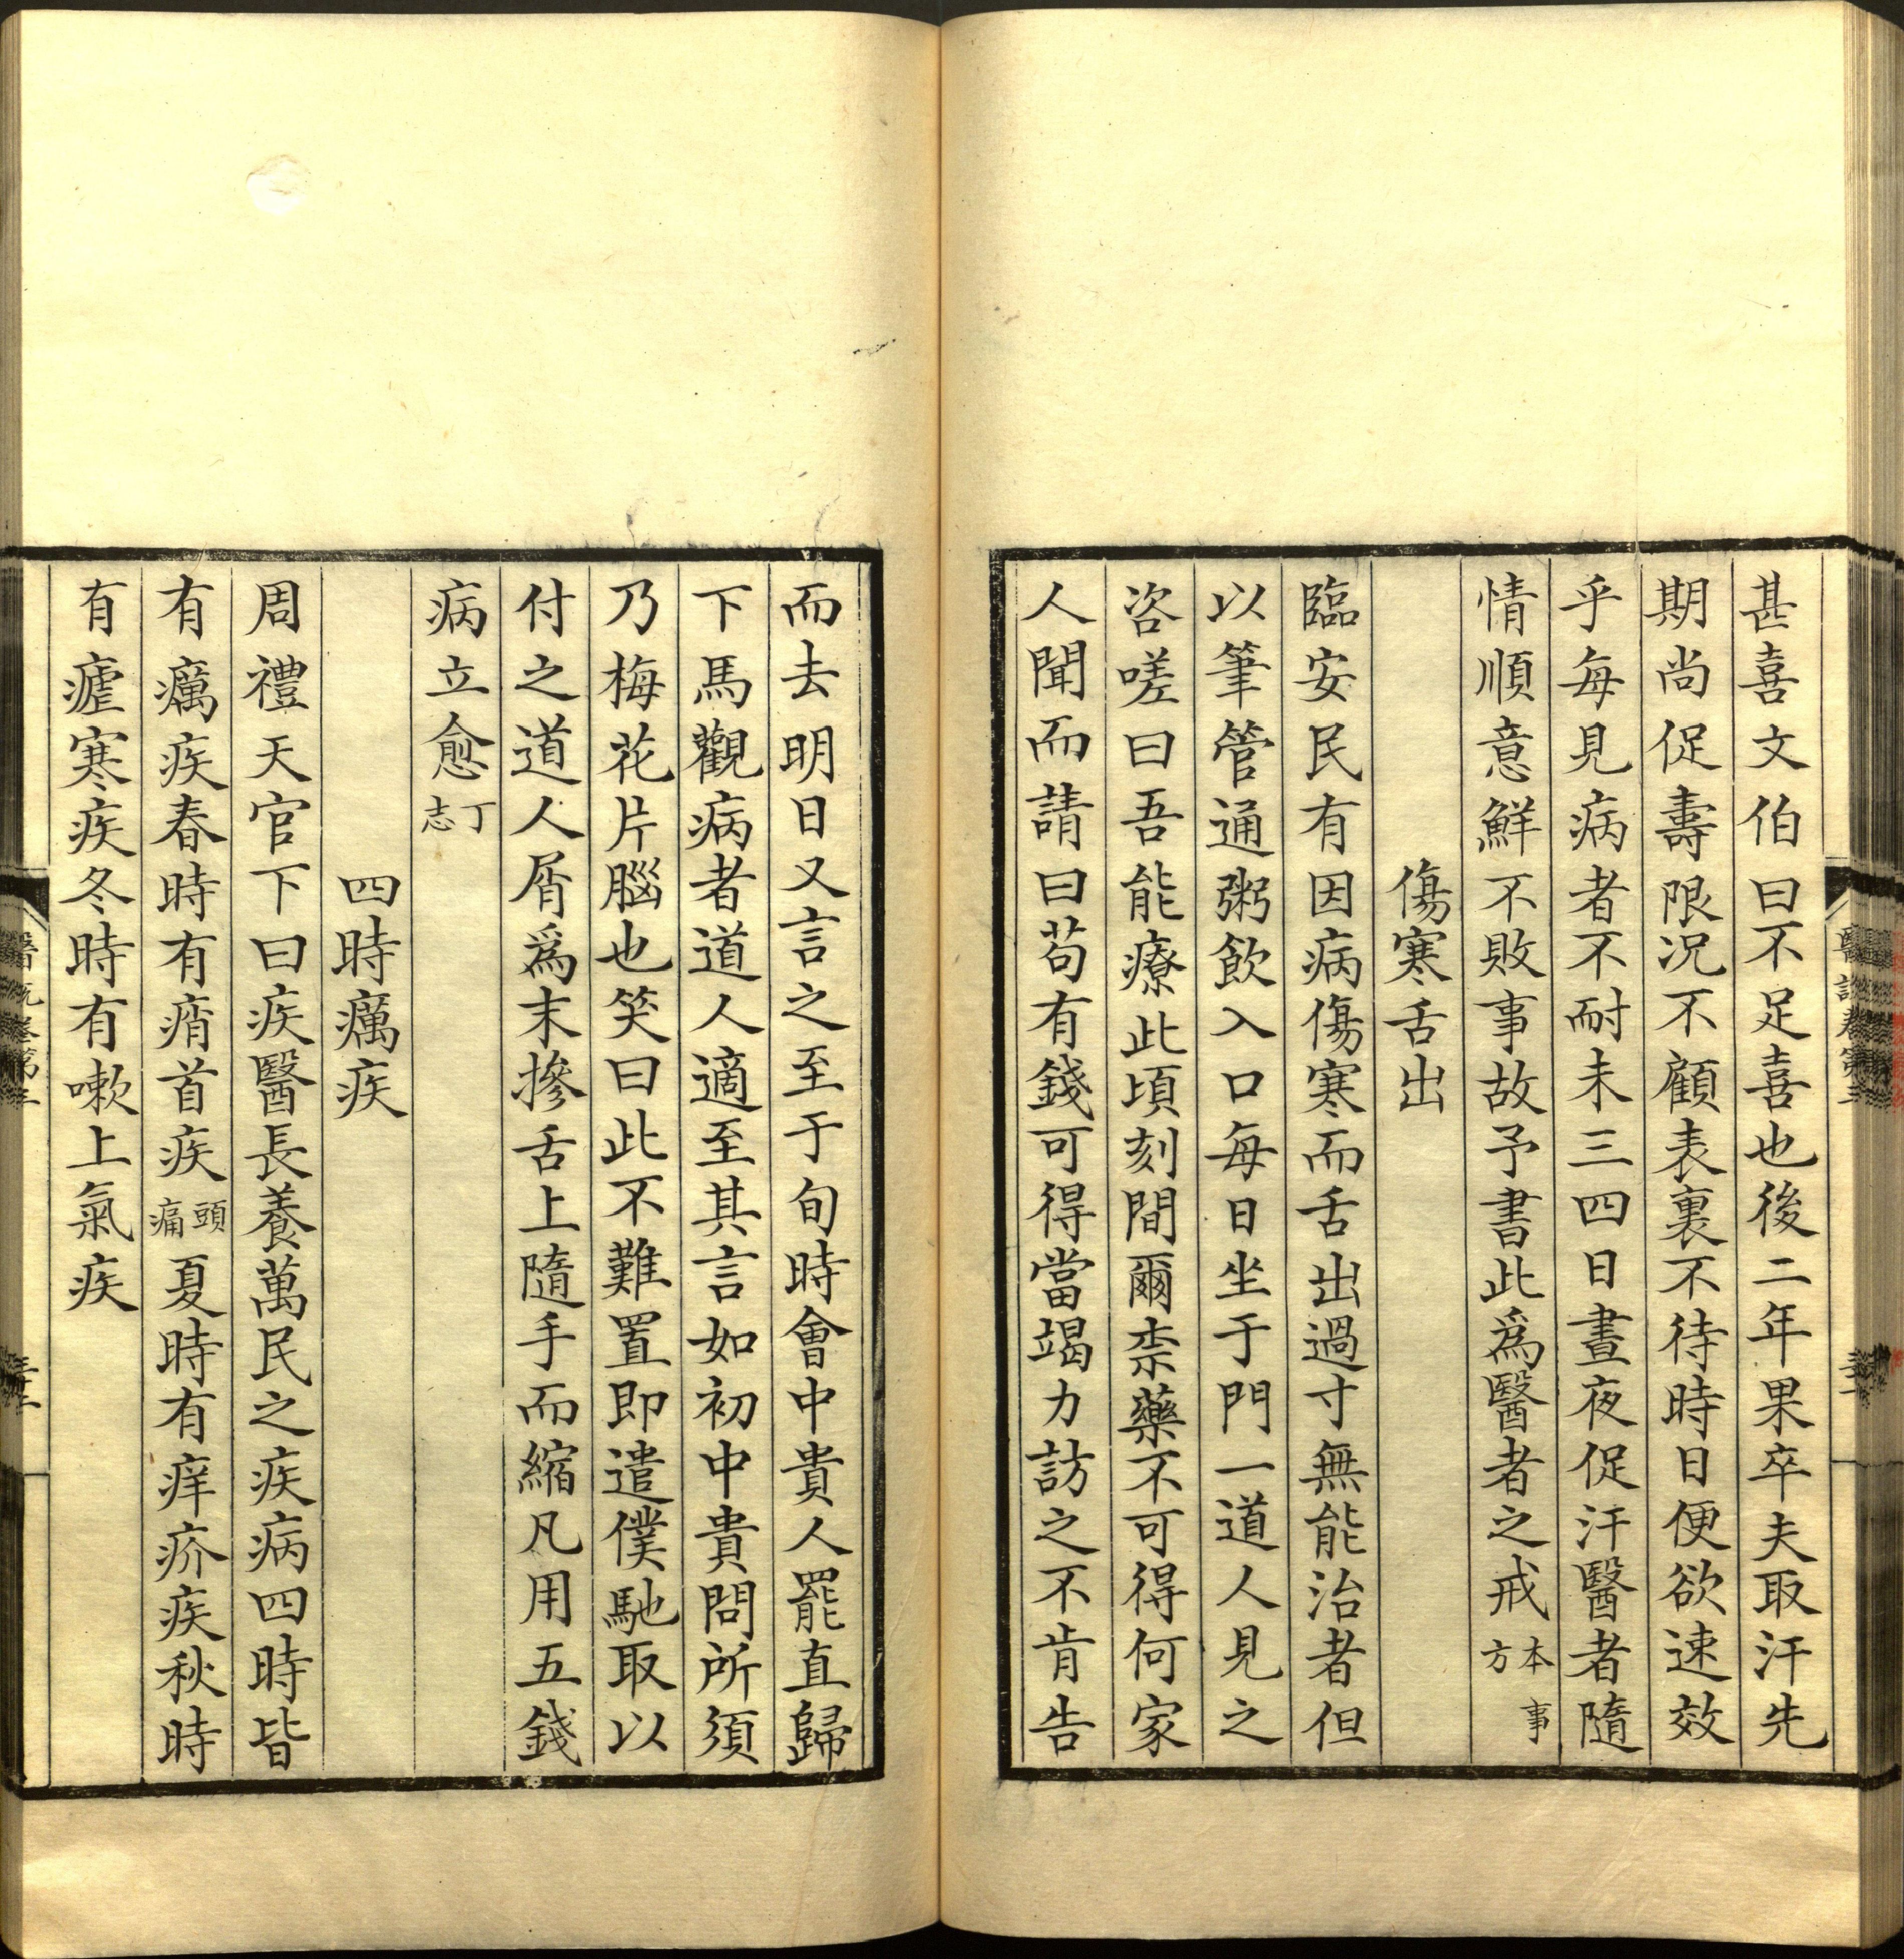 甚喜文伯曰不足喜也後二年果卒夫取汗先
期尚促壽限况不顧表裏不待時日便欲速效
乎每見病者不耐未三四日晝夜促汗醫者隨
情順意鮮不敗事故予書此爲醫者之戒本事方
傷寒舌出
臨安民有因病傷寒而舌出過寸無能治者但
以筆管通粥飲入口每日坐于門一道人見之
咨嗟曰吾能療此頃刻間爾柰藥不可得何家
人聞而請曰苟有錢可得當竭力訪之不肯告
而去明日又言之至于旬時會中貴人罷直歸
下馬觀病者道人適至其言如初中貴問所須
乃梅花片腦也笑曰此不難置即遣僕馳取以
付之道人屑爲末摻舌上隨手而縮凡用五錢
病立愈丁志
四時癘疾
周禮天官下曰疾醫長養萬民之疾病四時皆
有癘疾春時有痟首疾頭痛夏時有痒疥疾秋時
有瘧寒疾冬時有嗽上氣疾